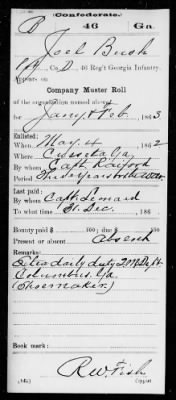 (Confederate.)
B 46 Ga.
Joel Bush
Pvt, Co. D, 46 Reg't Georgia Infantry.
Appears on
Company Muster Roll
of the organization named above,
for Jany & Feb., 1863
Enlisted:
When May 4, 1862
Where Cusseta Ga
By whom Capt Raiford
Period Three years or the war
Last paid:
By whom Capt Leonard
To what time 31 Dec, 186
Bounty paid $ 50; due $ 50
Present or absent Absent
Remarks:
Extra daily duty QM Dept
Columbus, Ga
(Shoemaker)
Book mark:
R W Fish
(642) Copyist.